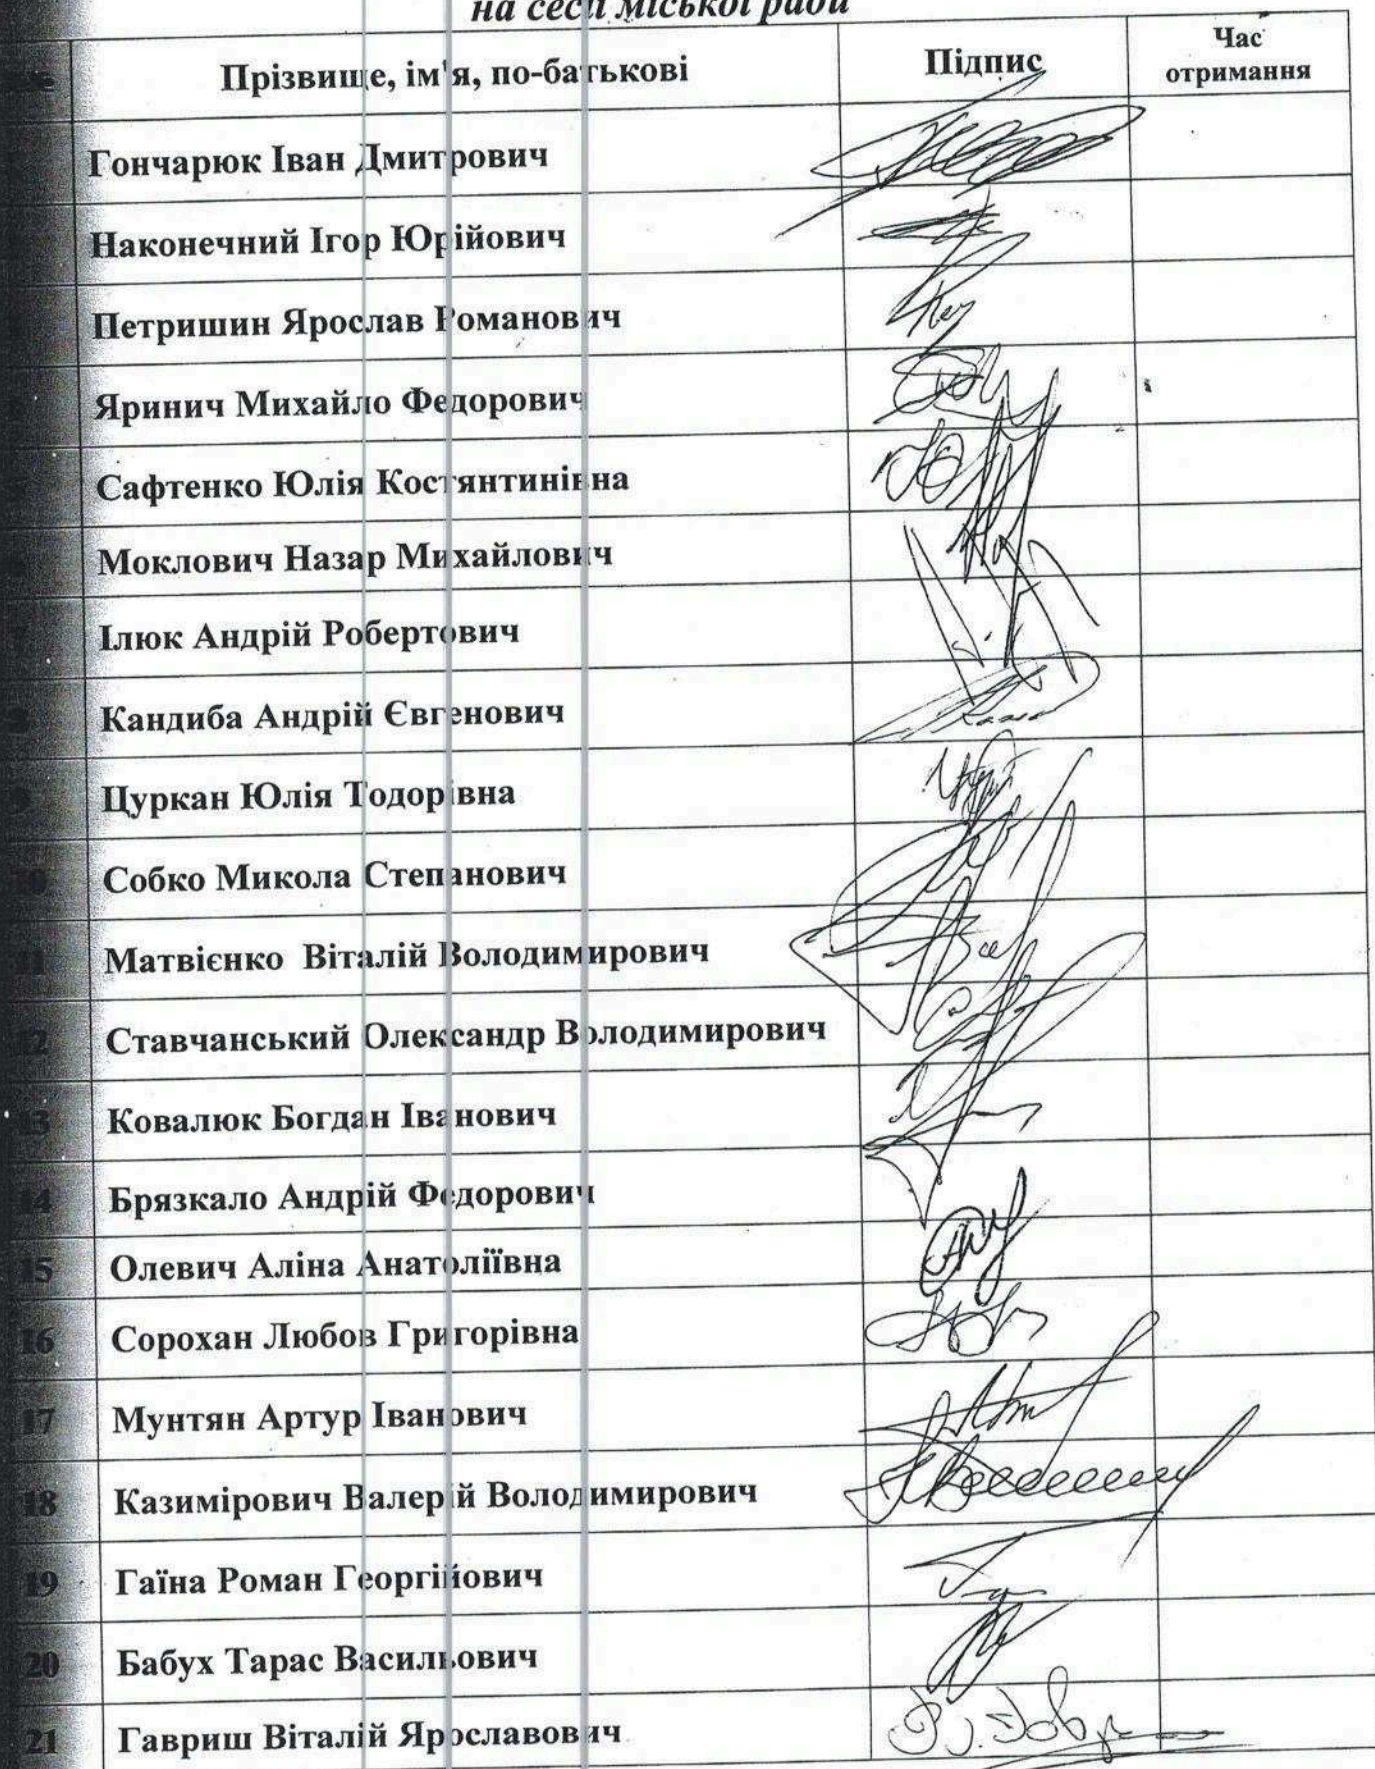 на сесії міської ради
Прізвище, ім'я, по-батькові Підпис Час отримання
Гончарюк Іван Дмитрович
Наконечний Ігор Юрійович
Петришин Ярослав Романович
Яринич Михайло Федорович
Сафтенко Юлія Костянтинівна
Моклович Назар Михайлович
Ілюк Андрій Робертович
8 Кандиба Андрій Євгенович
9 Цуркан Юлія Тодорівна
10 Собко Микола Степанович
11 Матвієнко Віталій Володимирович
12 Ставчанський Олександр Володимирович
13 Ковалюк Богдан Іванович
14 Брязкало Андрій Федорович
15 Олевич Аліна Анатоліївна
16 Сорохан Любов Григорівна
17 Мунтян Артур Іванович
18 Казимірович Валерій Володимирович
19 Гаїна Роман Георгійович
20 Бабух Тарас Васильович
21 Гавриш Віталій Ярославович